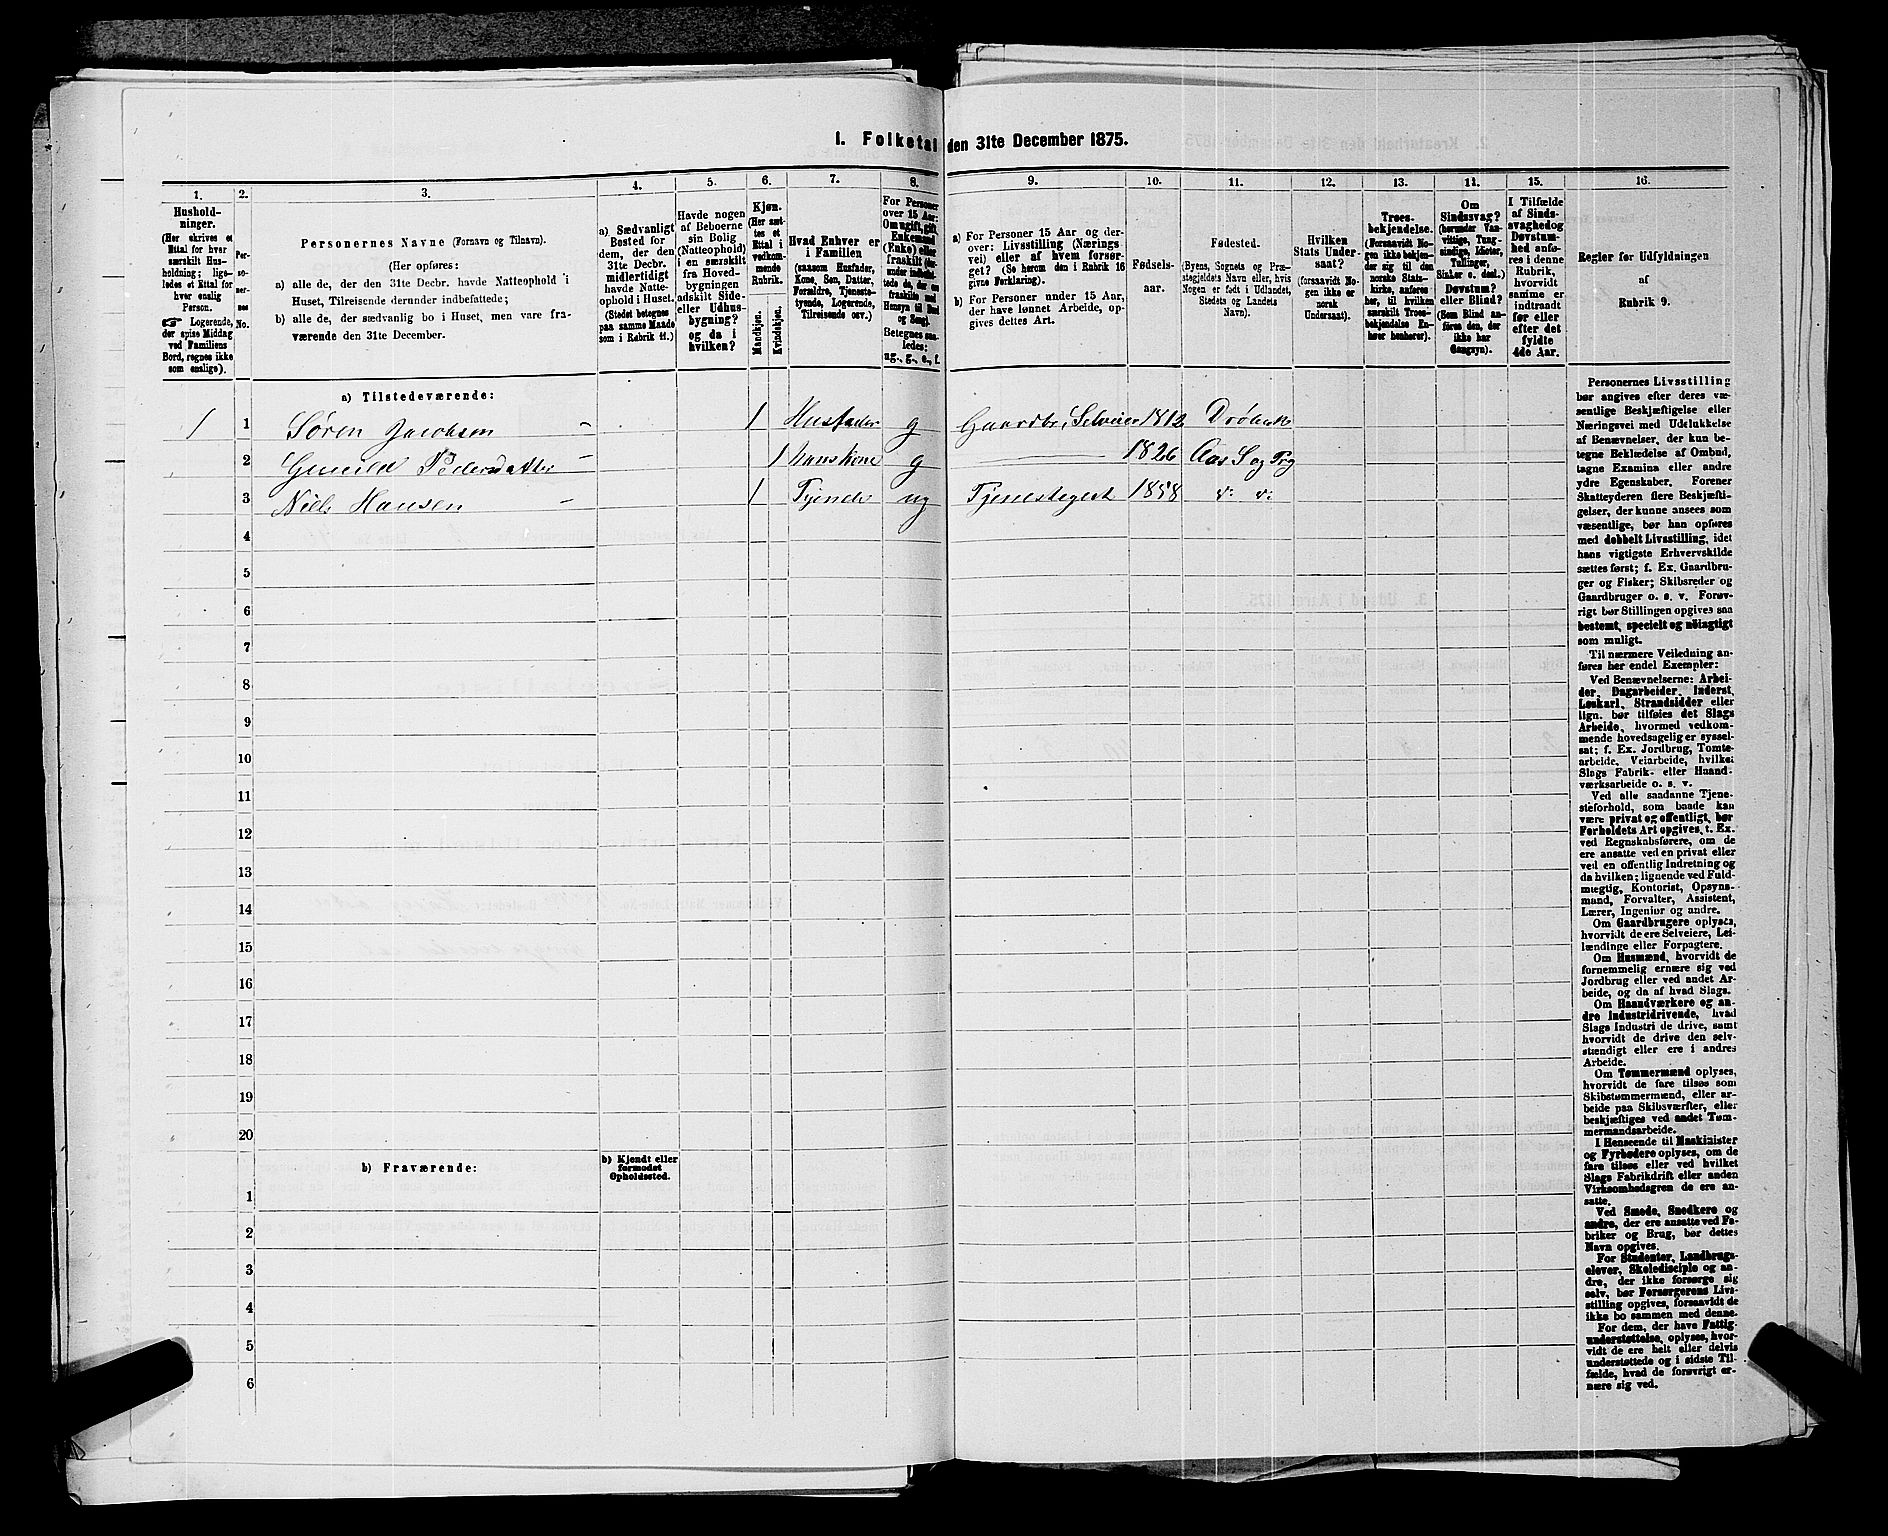 1. Folketal den 31te December 1875.
1.
2.
3.
4.
5.
6.
7.
8.
9.
10.
11.
12.
13.
14.
15.
16.
Hushold-
ninger.
(Her skrives et
Ettal for hver
særskilt Hus-
holdning; lige-
ledes et Ettal for
hver enslig
Person.
☞ Logerende,
der spise Middag
ved Familiens
Bord, regnes ikke
som enslige).
Per-
so-
ner-
nes
No.
Personernes Navne (Fornavn og Tilnavn).
(Her opføres:
a) alle de, der den 31te Decbr. havde Natteophold i
Huset, Tilreisende derunder indbefattede;
b) alle de, der sædvanlig bo i Huset, men vare fra-
værende den 31te December.
a) Sædvanligt
Bosted for
dem, der den
31te Decbr.
midlertidigt
havde Natte-
ophold i Huset.
(Stedet betegnes
paa samme Maade
som i Rubrik 11.)
Havde nogen
af Beboerne
sin Bolig
(Natteophold)
i en særskilt
fra Hoved-
bygningen
adskilt Side-
eller Udhus-
bygning?
og da i
hvilken?
Kjøn.
(Her sæt-
tes et
Ettal i
vedkom-
mende
Rubrik.
Mandkjøn.
Kvindekjøn.
Hvad Enhver er
i Familien
(saasom Husfader,
Kone, Søn, Datter,
Forældre, Tjeneste-
tyende, Logerende,
Tilreisende osv.
For Personer
over 15 Aar:
Om ugift, gift,
Enkemand
(Enke) eller
fraskilt
Betegnes saa-
ledes:
ug., g., e., f.
a) For Personer 15 Aar og der-
over: Livsstilling (Nærings-
vei) eller af hvem forsør-
get? (Se herom den i Rubrik 16
givne Forklaring).
b) For Personer under 15 Aar,
der have lønnet Arbeide, op-
gives dettes Art.
Fødsels-
aar.
Fødested.
(Byens, Sognets og Præ-
stegjeldets Navn eller, hvis
Nogen er født i Udlandet,
Stedets og Landets
Navn).
Hvilken
Stats Under-
saat?
(forsaavidt No-
gen ikke er
norsk
Undersaat).
Troes-
bekjendelse.
(Forsaavidt No-
gen ikke bekjen-
der sig til den
norske Stats-
kirke, anføres
her, til hvilken
særskilt Troes-
bekjendelse En-
hver henhører).
Om
Sindssvag?
(herunder Van-
vittige, Tung-
sindige, Idioter,
Tullinger,
Sinker o. desl.)
Døvstum?
eller Blind?
(Som Blind an-
føres den, der
ikke har
Gangsyn).
I Tilfælde
af Sinds-
svaghed og
Døvstum-
hed anfø-
res i denne
Rubrik,
hvorvidt
samme er
indtraadt
før eller
efter det
fyldte
4de Aar.
Regler for Udfyldningen
af
Rubrik 9.
a) Tilstedeværende:
1 1 Søren Jacobsen - 1 Husfader g Gaardbr, Selveier 1812 Drøbak
2 Gunild Pedersdatter - 1 Hans Kone g 1826 Aas S og Prg
3 Niels Hansen - 1 Tjener ug Tjenestegut 1858 v: v:
4
5
6
7
8
9
10
11
12
13
14
15
16
17
18
19
20
b) Fraværende:
b) Kjendt eller
formodet
Opholdssted.
1
2
3
4
5
6
Personernes Livsstilling
bør angives efter deres væ-
sentlige Beskjæftigelse eller
Næringsvei med Udelukkelse
af Benævnelser, der kun be-
tegne Beklædelse af Ombud,
tagne Examina eller andre
ydre Egenskaber. Forener
Skatteyderen flere Beskjæfti-
gelser, der kunne ansees som
væsentlige, bør han opføres
med dobbelt Livsstilling, idet
hans vigtigste Erhvervskilde
sættes først; f. Ex. Gaardbru-
ger og Fisker; Skibsreder og
Gaardbruger o. s. v. Forøv-
rigt bør Stillingen opgives saa
bestemt, specielt og nøiagtigt
som muligt.
Til nærmere Veiledning an-
føres her endel Exempler:
Ved Benævnelserne: Arbei-
der, Dagarbeider, Inderst,
Løskarl, Strandsidder eller
lign. bør tilføies det Slags
Arbeide, hvormed vedkom-
mende hovedsagelig er syssel-
sat; f. Ex. Jordbrug, Tomte-
arbeide, Veiarbeide, hvilket
Slags Fabrik- eller Haand-
værksarbeide o. s. v.
Ved alle saadanne Tjene-
steforhold, som baade kan
være privat og offentligt, bør
Forholdets Art opgives, t. Ex.
ved Regnskabsførere, om de
ere ansatte ved en privat eller
ved en offentlig Indretning og
da hvilken; lignende ved Fuld-
mægtig, Kontorist, Opsyns-
mand, Forvalter, Assistent,
Lærer, Ingeniør og andre.
Om Gaardbrugere oplyses,
hvorvidt de ere Selveiere, Lei-
lændinge eller Forpagtere.
Om Husmænd, hvorvidt de
fornemmelig ernære sig ved
Jordbrug eller ved andet Ar-
beide, og da af hvad Slags.
Om Haandværkere og an-
dre Industridrivende, hvad
Slags Industri de drive, samt
hvorvidt de drive den selv-
stændigt eller ere i andres
Arbeide.
Om Tømmermænd oplyses,
hvorvidt de fare tilsøs som
Skibstømmermænd, eller ar-
beide paa Skibsværfter, eller
beskjæftiges ved andet Tøm-
mermandsarbeide.
I Henseende til Maskinister
og Fyrbødere oplyses, om de
fare tilsøs eller ved hvilket
Slags Fabrikdrift eller anden
Virksomhedsgren de ere an-
satte.
Ved Smede, Snedkere og
andre, der ere ansatte ved Fa-
briker og Brug, bør dettes
Navn opgives.
For Studenter, Landbrugs-
elever, Skoledisciple og an-
dre, der ikke forsørge sig
selv, bør Forsørgerens Livs-
stilling opgives, forsaavidt de
ikke bo sammen med denne.
For dem, der have Fattig-
understøttelse, oplyses, hvor-
vidt de ere helt eller delvis
understøttede og i sidste Til-
fælde, hvad de forøvrigt er-
nære sig ved.